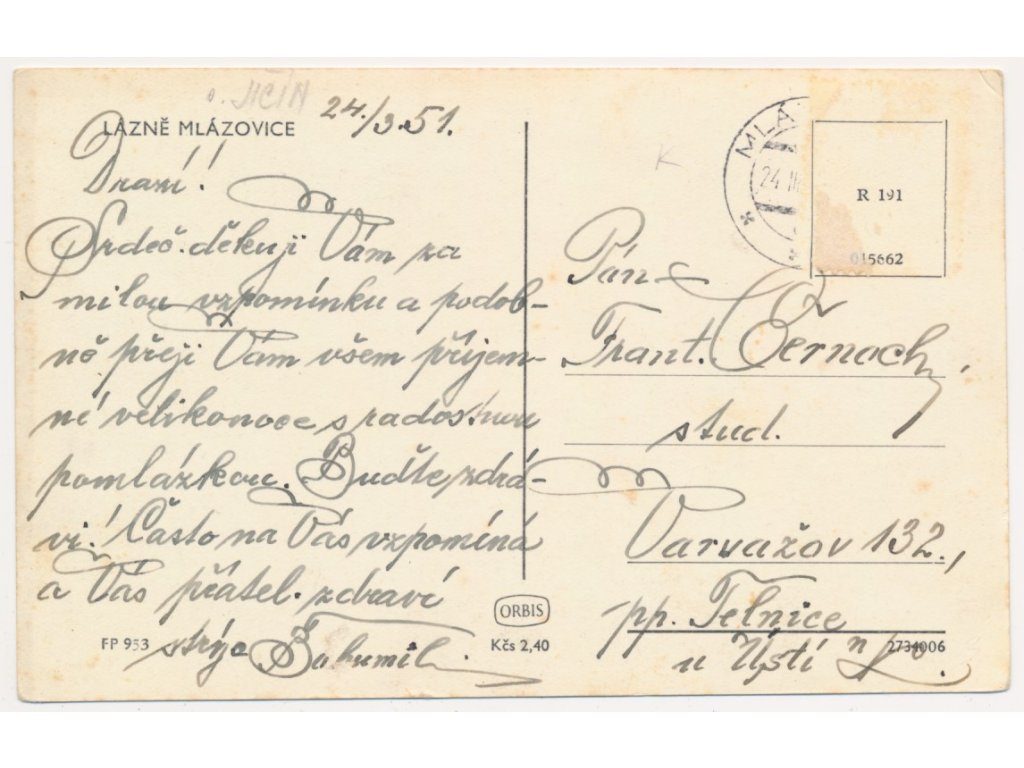 o. JIČÍN
LÁZNĚ MLÁZOVICE
24./3.51.
Drazí!
Srdeč. děkuji Vám za
milou vzpomínku a podob-
ně přeji Vám všem příjem-
né velikonoce s radostnou
pomlázkou. Buďte zdrá-
vi! Často na Vás vzpomíná
a Vás přátel. zdraví
strýc Bohumil.
FP 953
ORBIS
Kčs 2,40
K
MLÁ
24 III
R 191
015662
Pán
Frant. Černoch,
stud.
Varvažov 132.,
pp. Telnice
u Ústí n/L.
2734006